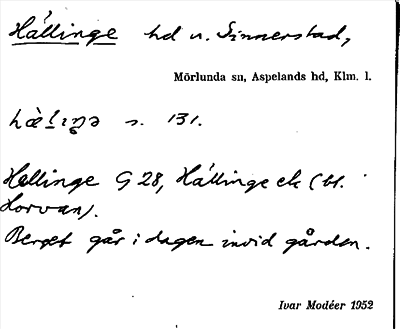 Hällinge hd u. Sinnerstad,
Mörlunda sn, Aspelands hd, Klm. l.
hæ̀lıŋə s. 131.
Hellinge G 28, Hällinge ek (bl.
Horvan).
Berget går i dagen invid gården.
Ivar Modéer 1952